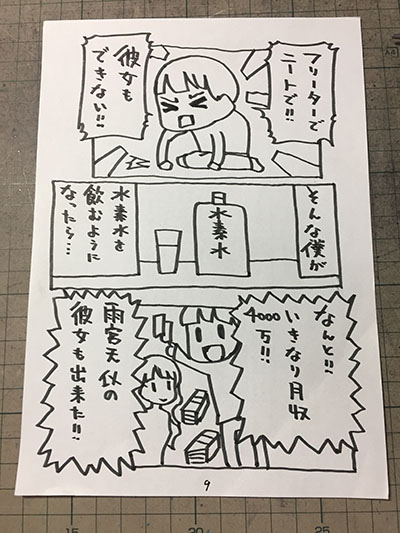 フリーターで
ニートで!!
彼女も
できない!!
そんな僕が
水素水
水素水を
飲むように
なったら…
なんと!!
いきなり月収
4000
万!!
雨宮天似の
彼女も出来た!!
9
15
20
25